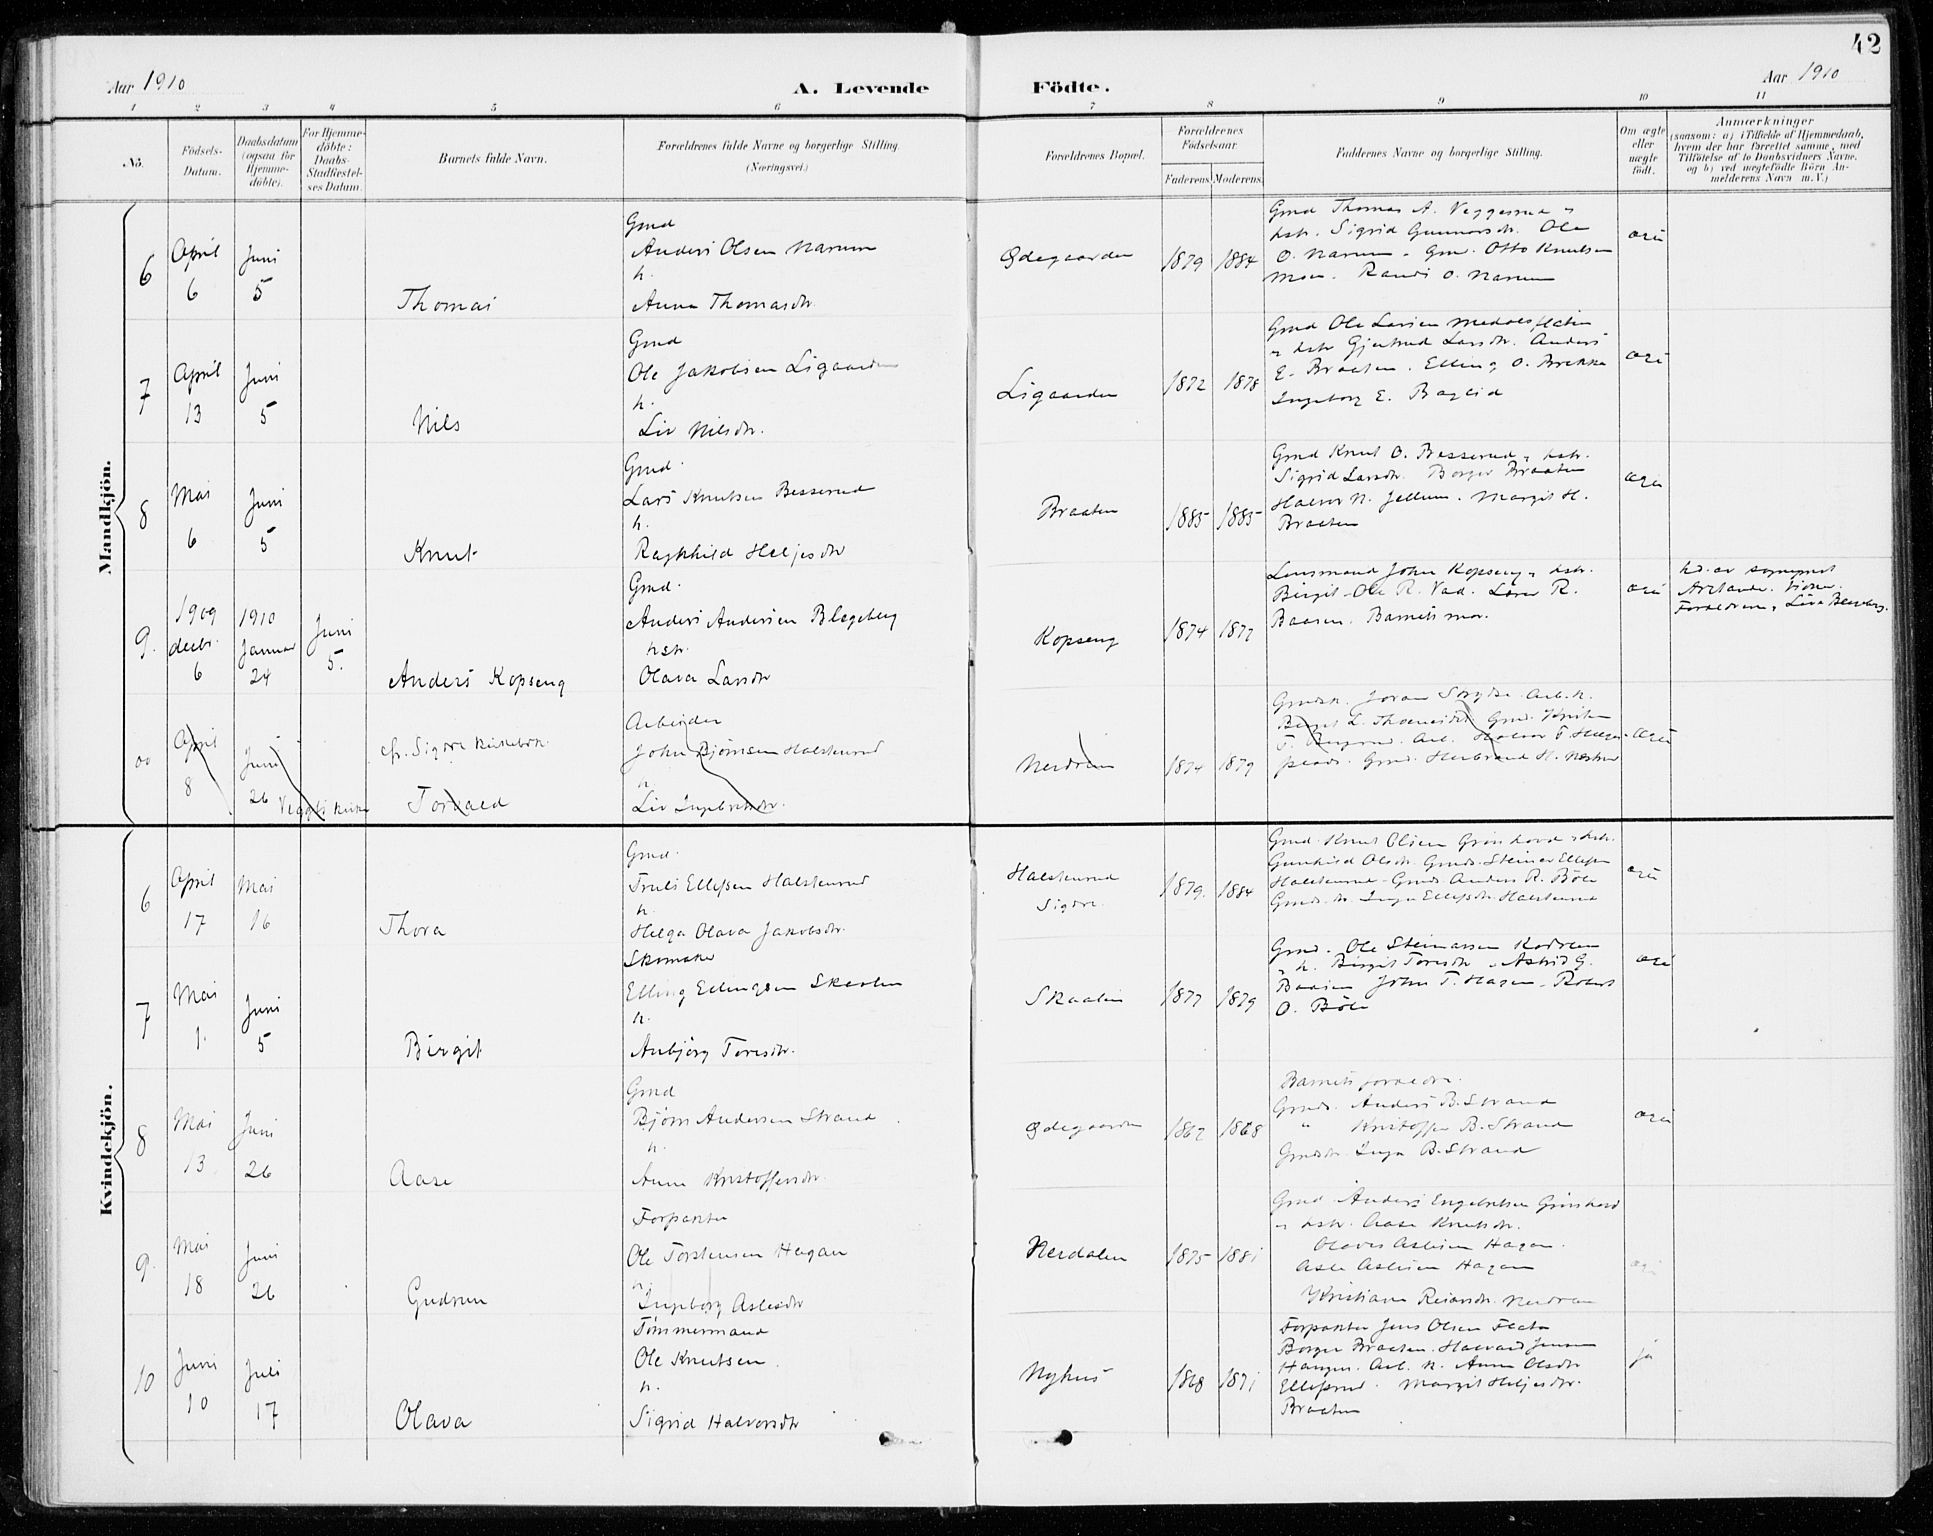 42
Aar 1910
A. Levende Födte.
Aar 1910
1 2 3 4 5 6 7 8 9 10 11
No.
Födsels-
Datum.
Daabsdatum
(ogsaa for
Hjemme-
döbte).
For Hjemme-
döbte:
Daabs-
Stadfæstel-
ses Datum.
Barnets fulde Navn.
Forældrenes fulde Navne og borgerlige Stilling.
(Næringsvei.)
Forældrenes Bopæl.
Forældrenes
Födselsaar.
Faderens. Moderens.
Faddernes Navne og borgerlige Stilling.
Om ægte
eller
uægte
födt.
Anmærkninger
(saasom: a) i Tilfælde af Hjemmedaab,
hvem der har forrettet samme, med
Tilföielse af to Daabsvidners Navne,
og b) ved uægtefödte Börn An-
melderens Navn m. V.)
Mandkjön.
6
April
6
Juni
5
Thomas
Gmd
Anders Olsen Narum
h.
Anna Thomasdtr.
Ødegaarden
1879 1884
Gmd Thomas A. Veggesrud
hstr. Sigrid Gunnarsdtr. Ole
O. Narum. Gmd. Otto Knutsen
Moen. Randi O. Narum
7
April
13
Juni
5
Nils
Gmd
Ole Jakobsen Ligaarden
h.
Liv Nilsdtr.
Ligaarden
1872 1878
Gmd Ole Larsen
hstr Gjertrud Larsdtr. Anders
E. Braaten. Elling O. Brekka
Ingeborg E. Baglid
8
Mai
6
Juni
5
Knut
Gmd.
Lars Knutsen Besserud
h.
Ragnhild Heljesdtr
Braaten
1885 1885
Gmd Knut O. Besserud hstr.
Sigrid Larsdtr. Borger Braaten
Halvor N. Jellum. Margit H.
Braaten
9.
1909
decbr.
6
1910
Januar
24
Juni
5.
Anders Kopseng
Gmd.
Anders Andersen Blegeberg
hstr.
Olava Larsdtr
Kopseng
1874 1877
Lensmand John Kopseng hstr.
Birgit Ole R. Vad. R.
Baasen. Barnets mor.
hd. av
Forældrene
April
8
Juni
26
Veggli kirke
cfr. Sigdal kirkebok
Torvald
Arbeider
John Bjørnsen Halstenrud
h
Liv Ingebretsdtr.
Nerdrum
1874 1879
Kvindekjön.
6
April
17
Mai
16
Thora
Gmd.
Truls Ellefsen Halstenrud
h.
Helga Olava Jakobsdtr.
Halstenrud
Sigdal
1879. 1884
Gmd. Knut Olsen Grönhovd hstr.
Gunhild Olsdtr. Gmds. Steinar Ellefsen
Halstenrud. Gmds. Anders R. Böle
Gmds. dtr. Inga Ellefsdtr. Halstenrud
7
Mai
1.
Juni
5
Birgit
Skomaker
Elling Ellingsen Skaalen
h.
Anbjörg Toresdtr.
Skaalen
1877 1879
Gmd. Ole Steinarsen
h. Birgit Toresdtr. Astrid G.
Baasen John T. Hagen. Robert
O. Böle
8
Mai
13
Juni
26
Aase
Gmd
Björn Andersen Strand
h.
Anne Kristoffersdtr.
Ødegaarden
1862 1868
Barnets forældre.
Gmds. Anders B. Strand
" Kristoffer B. Strand
Gmdsdtr. Inga B. Strand
9.
Mai
18
Juni
26
Gudrun
Forpakter
Ole Torstensen Hagan
h.
Ingeborg Aslesdtr
Nerdalen
1875 1881
Gmd Anders Engebretsen Grönhovd
hstr. Aase Knutsdtr.
Olaves Aslesen Hagan.
Asle Aslesen Hagan
Kristiane Reiarsdtr. Nerdrum
10
Juni
10
Juli
17
Olava
Tömmermand
Ole Knutsen
h.
Sigrid Halvorsdtr
Nyhus
1868 1871
Forpakter Jens Olsen Flata
Borger Braaten. Halvard Jensen
Haugen. Arb. h. Anne Olsdtr
Ellefsrud. Margit Heljesdtr.
Braaten
ja